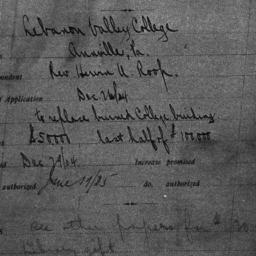 Lebanon Valley College
Annville, Pa.
Rev Hervin U. Roop.
Application Dec 26/04
to replace burned College building
$50000 last half of $100,000
Dec 29/04 Increase promised
authorized June 11/05 do. authorized
see other papers for $
Library